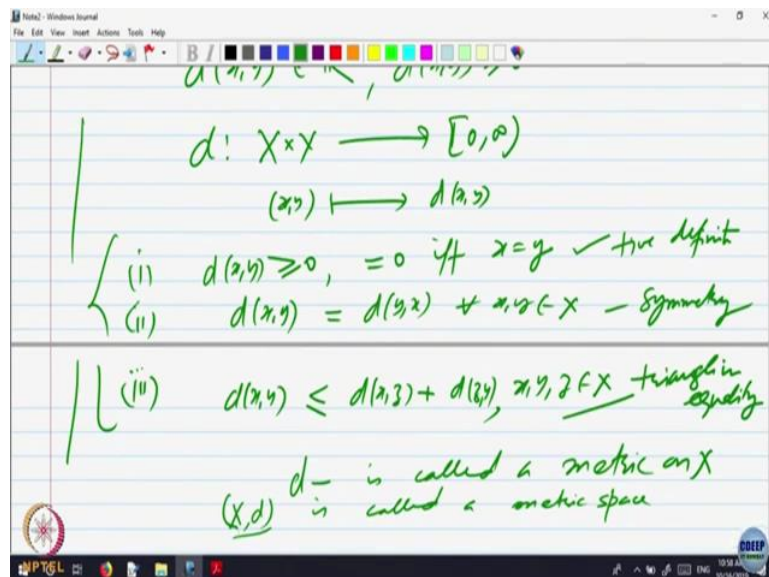 Note2 - Windows Journal
File Edit View Insert Actions Tools Help
B I
d(x,y) ∈ ℝ, d(x,y) ≥ 0
d: X×X ⟶ [0,∞)
(x,y) ⟼ d(x,y)
(i) d(x,y) ≥ 0, = 0 iff x=y ✓ +ive definit
(ii) d(x,y) = d(y,x) ∀ x,y ∈ X – Symmetry
(iii) d(x,y) ≤ d(x,z) + d(z,y), x,y,z ∈ X triangle in
equality
d – is called a metric on X
(X,d) is called a metric space
NPTEL
CDEEP
IIT BOMBAY
ENG